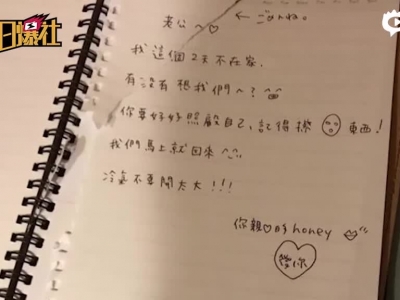 日爆社
老公～♡ ← ごめね。
我這個2天不在家.
有沒有想我們～?
你要好好照顧自己,記得擦 東西!
我們馬上就回來^^
冷氣不要開太大!!!
你親♡的honey
愛你